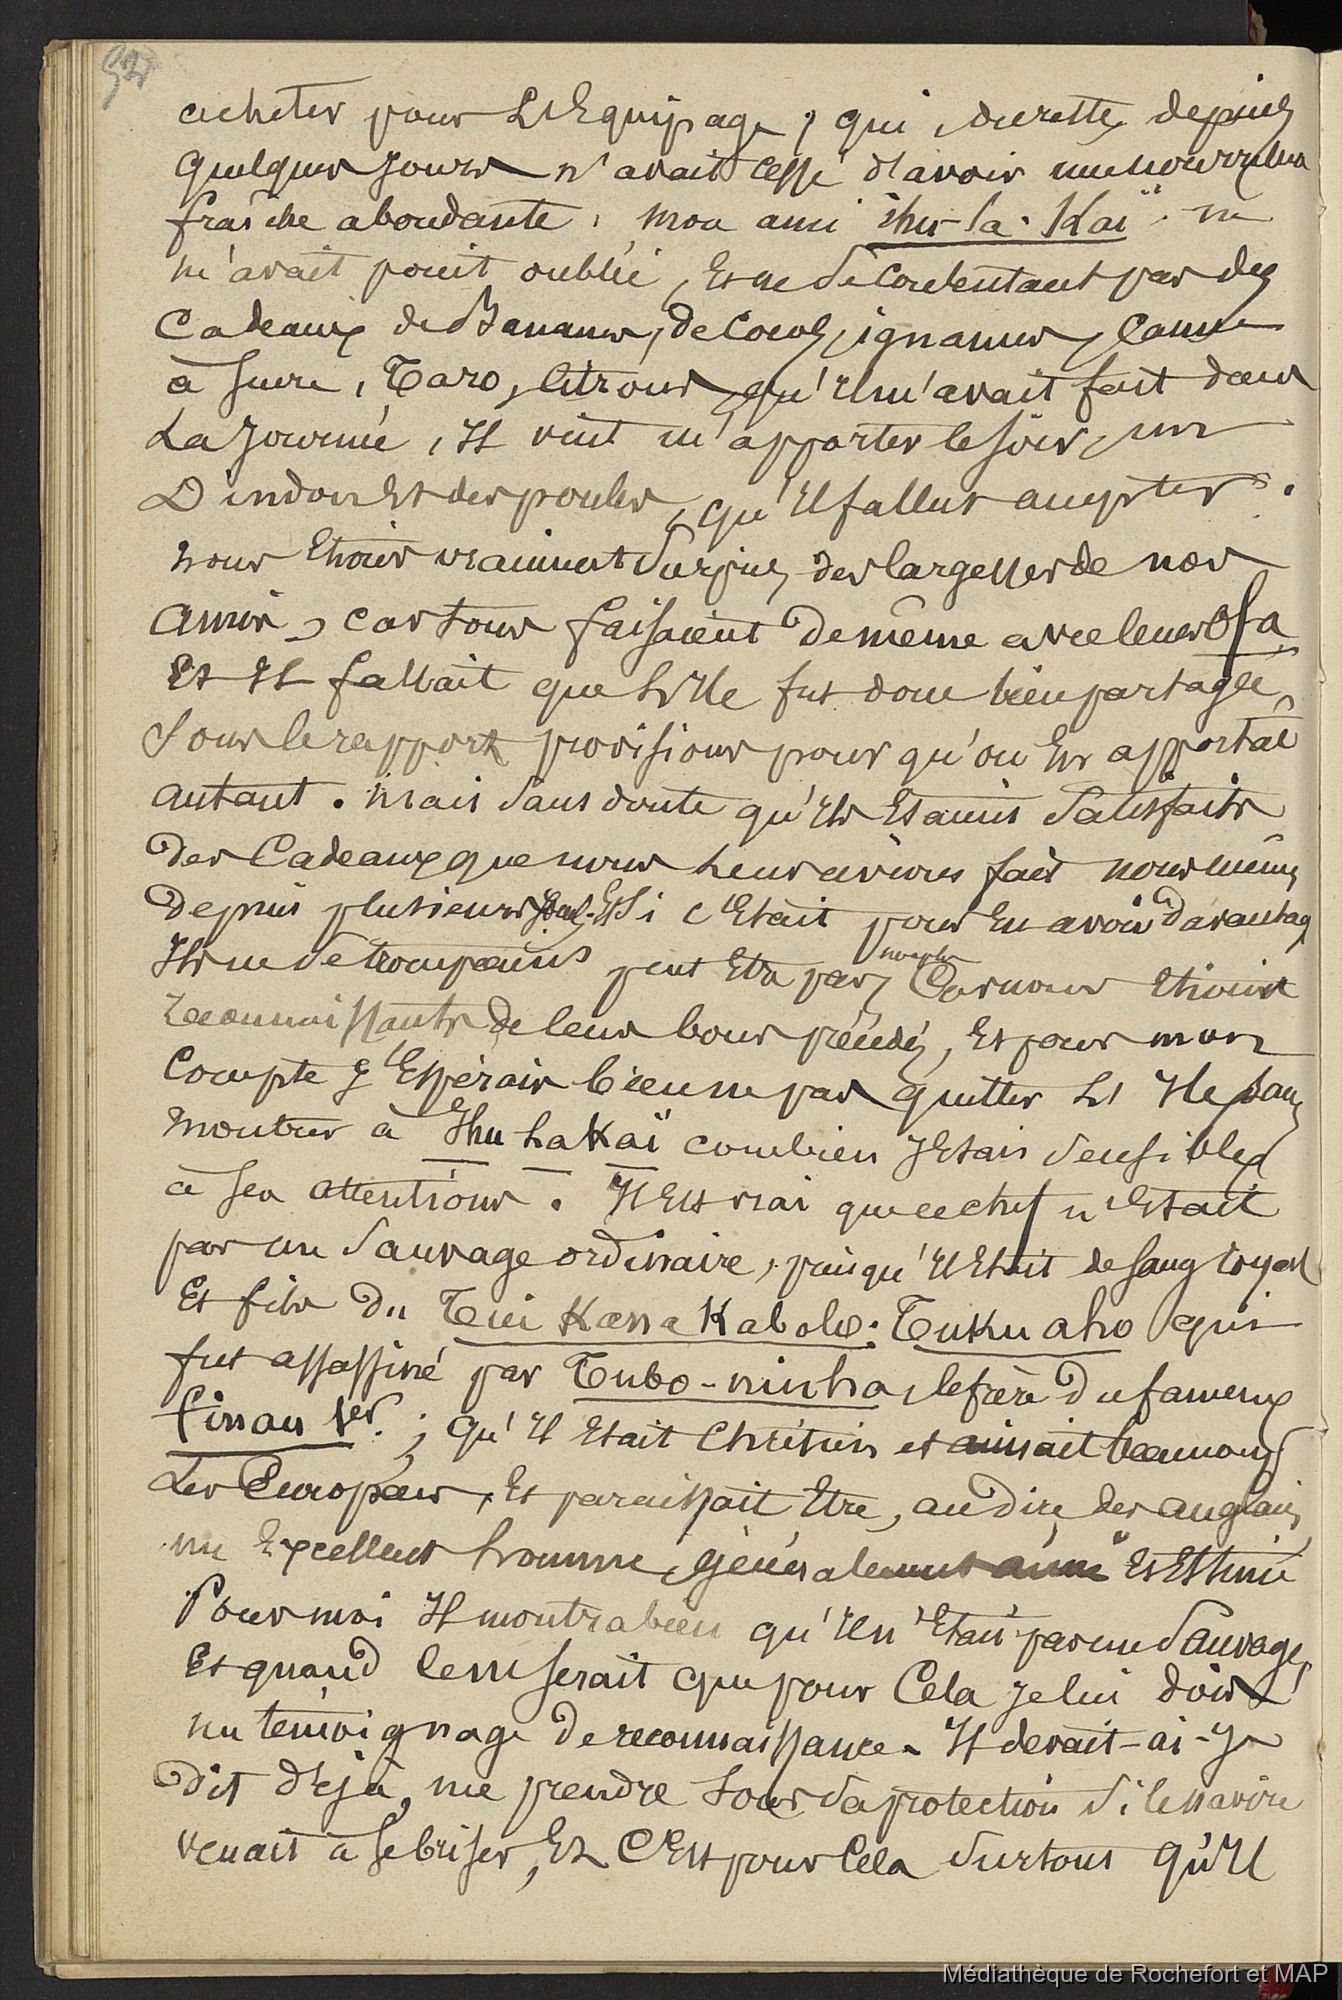 92
acheter pour L'Equipage, qui, du reste, depuis
quelques jours n'avait cessé d'avoir une nourriture
fraîche abondante, mon ami Ihu-la-Kaï ne
m'avait point oublié, Et ne se contentant pas des
Cadeaux de Bananes, de Cocos, ignames, Canne
à sucre, Taro, citrons, qu'Il m'avait fait dans
La Journée, Il vint m'apporter le soir, un
Dindon Et des poules, qu'Il fallut accepter.
nous Etions vraiment Surpris des largesses de nos
amis, car tous faisaient de même avec leurs Ofa
Et Il fallait que L'Ile fut donc bien partagée,
Sous le rapport provisions pour qu'on En apportat
autant. mais Sans doute qu'Ils Etaient Satisfaits
Des Cadeaux que nous Leur avions fait nous mêmes
Depuis plusieurs Jours. Et Si c'Etait pour En avoir Davantage
Ils ne Se trompaient peut Etre pas, Car nous Etions
reconnaissants de leurs bons procédés, Et pour mon
Compte J'Espérais bien ne pas quitter L'Ile sans
montrer à Ihu La Kaï combien J'Etais Sensible
à ses attentions. Il Est vrai que ce chef n'Etait
pas un Sauvage ordinaire, puisqu'Il Etait de Sang royal
Et fils Du Tui Kana Kabolo: Tukuaho qui
fut assassiné par Tubo-ninha, le frère Du fameux
finau 1er.; qu'Il Etait Chrétien et aimait beaucoup
Les Européens, Et paraissait Etre, au dire des anglais,
un Excellent homme, généralement aimé Et Estimé
Pour moi Il montra bien qu'Il n'Etait pas un Sauvage,
Et quand ce ne serait que pour Cela Je lui dois
un témoignage De reconnaissance. Il devait-ai-Je
Dit déjà, me prendre Sous Sa protection Si le navire
venait à se briser, Et C'Est pour Cela Surtout qu'Il
Médiathèque de Rochefort et MAP